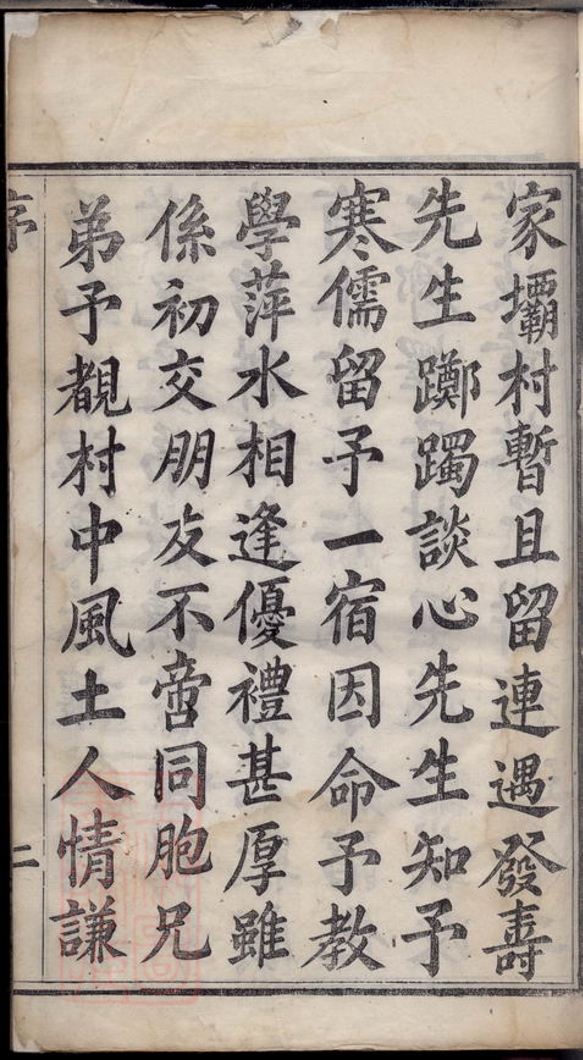 家壩村暫且留連遇發壽
先生躑躅談心先生知予
寒儒留予一宿因命予教
學萍水相逢優禮甚厚雖
係初交朋友不啻同胞兄
弟予覩村中風土人情謙
序
二